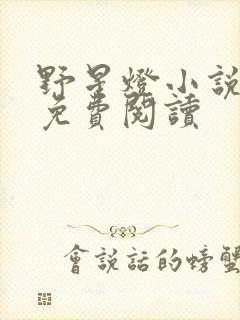 野星燈小說
免費閱讀
會說話的螃蟹